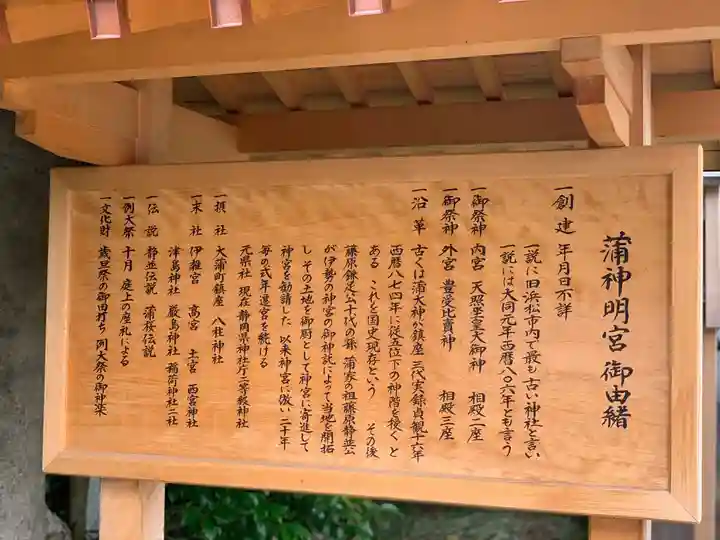 蒲神明宮御由緒
一創建 年月日不詳
一説に旧浜松市内で最も古い神社と言い
一説には大同元年西暦八〇六年とも言う
一御祭神 内宮 天照坐皇大御神 相殿二座
一御祭神 外宮 豊受比賣神 相殿三座
一沿革 古くは蒲大神が鎮座 三代実録貞観十六年
西暦八七四年に従五位下の神階を授くと
ある これを国史現存という その後
藤原鎌足公十代の孫 蒲家の祖藤原静並公
が伊勢の神宮の御神託によって当地を開拓
し その土地を御厨として神宮に寄進して
神宮を勧請した 以来神宮に倣い二十年
毎の式年遷宮を続ける
元県社 現在静岡県神社庁一等級神社
一摂社 大蒲町鎮座 八柱神社
一末社 伊雑宮 高宮 土宮 西宮神社
津島神社 厳島神社 稲荷神社二社
一伝説 静並伝説 蒲桜伝説
一例大祭 十月 庭上の座礼による
一文化財 歳旦祭の御田打ち 例大祭の御神楽